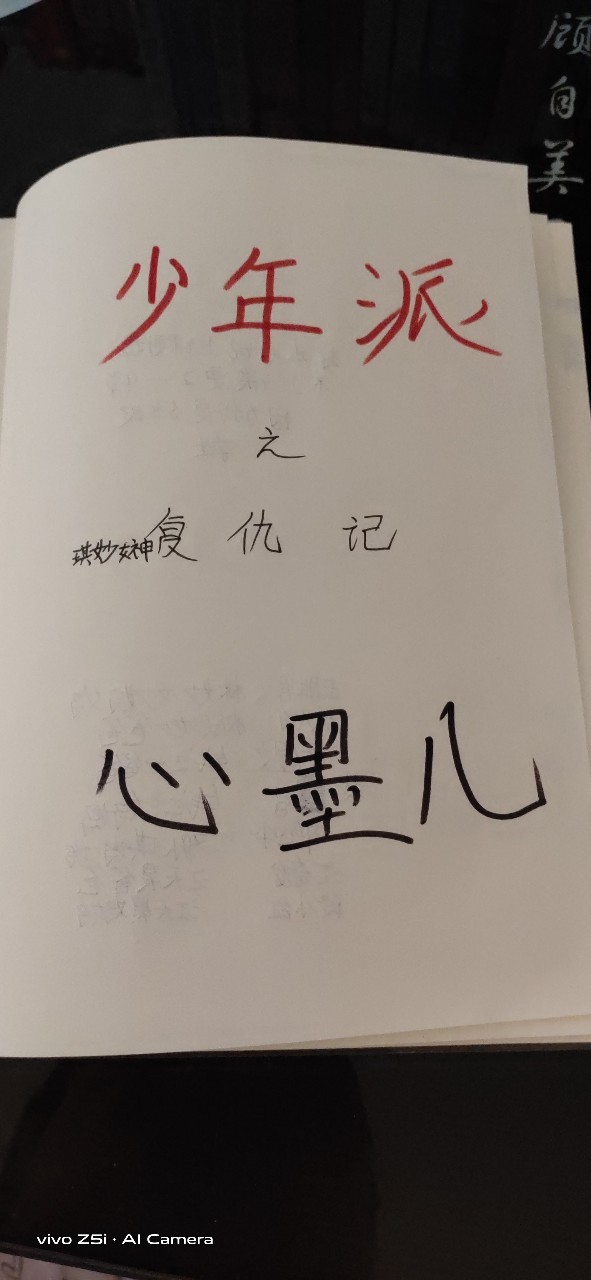 顾自美
少年派
之
琪妙女神复仇记
心墨几
vivo Z5i · AI Camera